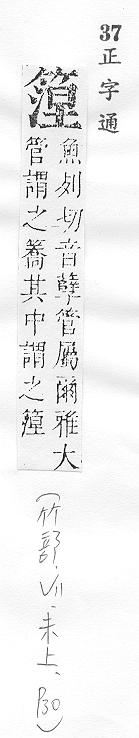 37 正字通
篞
魚列切音孽管屬爾雅大
管謂之簥其中謂之篞
(竹部、VII、未上、P30)